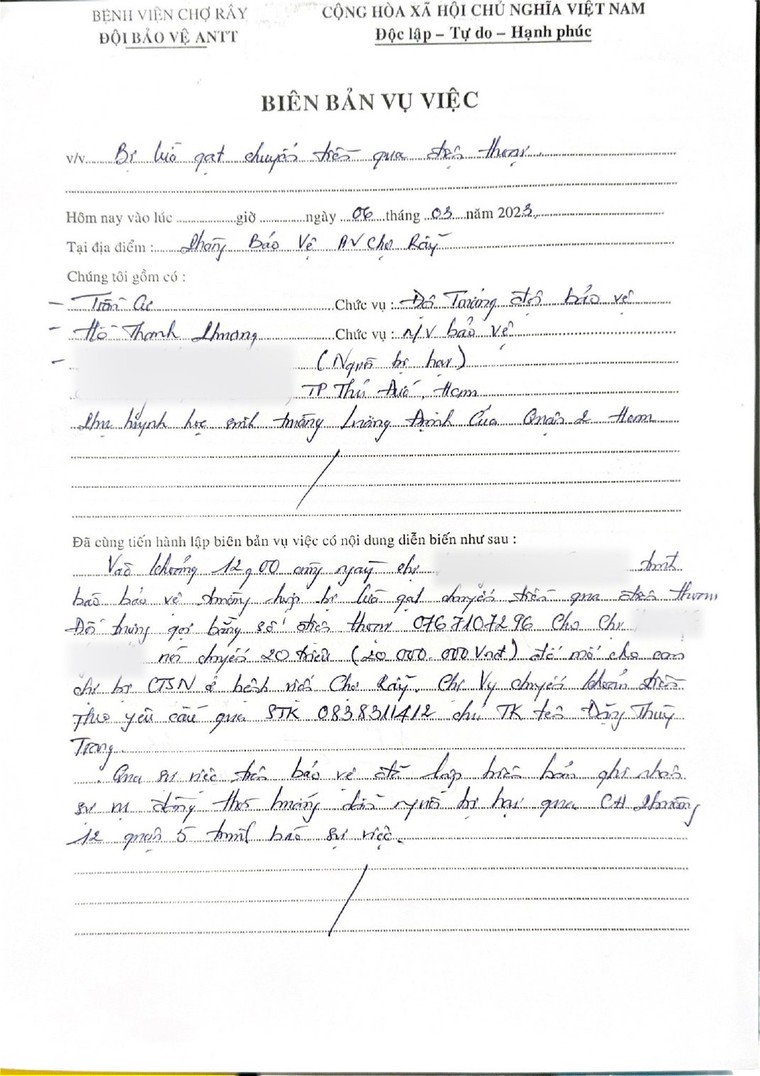 BỆNH VIỆN CHỢ RẪY
ĐỘI BẢO VỆ ANTT
CỘNG HÒA XÃ HỘI CHỦ NGHĨA VIỆT NAM
Độc lập – Tự do – Hạnh phúc
BIÊN BẢN VỤ VIỆC
v/v Bị lừa gạt chuyển tiền qua điện thoại
Hôm nay vào lúc giờ ngày 06 tháng 03 năm 2023
Tại địa điểm : Phòng Bảo Vệ BV Chợ Rẫy
Chúng tôi gồm có :
– Trần Chức vụ : Đội Trưởng đội bảo vệ
– Hồ Thanh Phong Chức vụ : N/V bảo vệ
– (Người bị hại)
TP Thủ Đức, Hcm
Phụ huynh học sinh trường Lương Định Của Quận 2 Hcm
Đã cùng tiến hành lập biên bản vụ việc có nội dung diễn biến như sau :
Vào khoảng 12g00 cùng ngày chị trình
báo bảo vệ trường hợp bị lừa gạt chuyển tiền qua điện thoại
Đối tượng gọi bằng số điện thoại 0767107296 cho chị
nói chuyển 20 triệu (20.000.000 Vnđ) để mổ cho con
chị bị CTSN ở bệnh viện Chợ Rẫy. Chị Vy chuyển khoản tiền
theo yêu cầu qua STK 0838311412 chủ TK tên Đặng Thùy
Trang.
Qua sự việc trên bảo vệ đã lập biên bản ghi nhận
sự vụ đồng thời hướng dẫn người bị hại qua CA Phường
12 quận 5 trình báo sự việc.